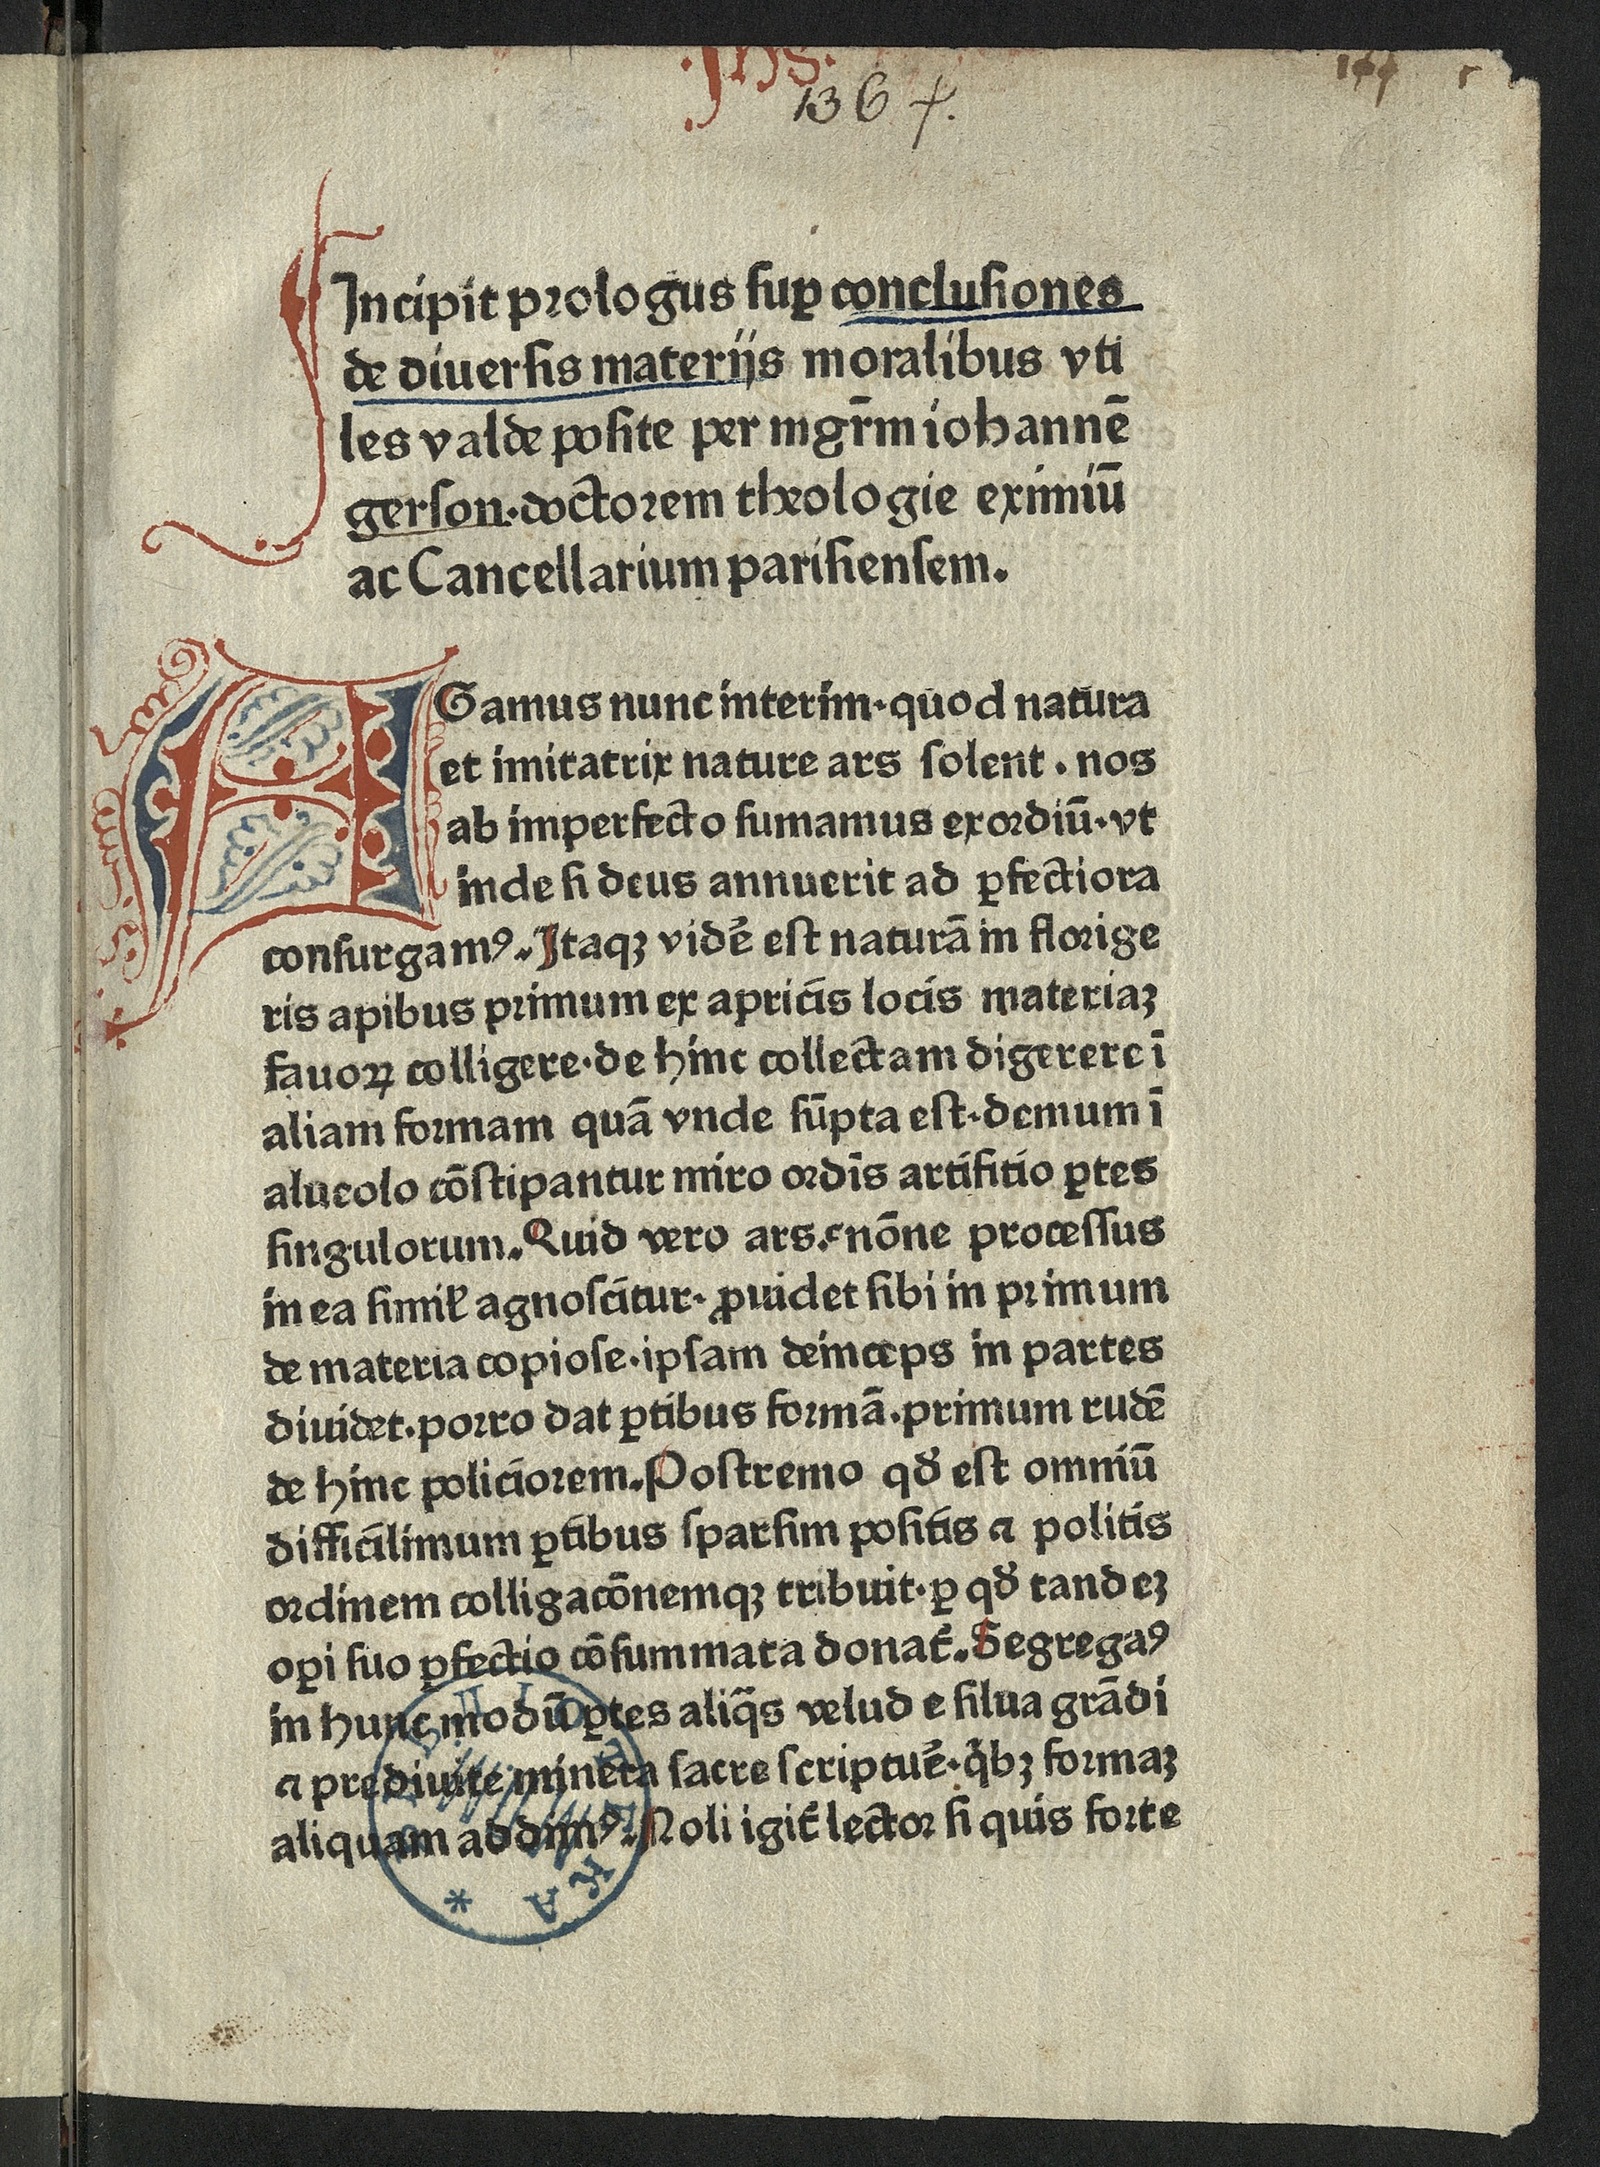 Jhs.
136 +.
Incipit prologus suꝑ conclusiones
de diuersis materijs moralibus vti
les valde posite per mgr̄m iohannē
gerson·doctorem theologie eximiū
ac Cancellarium parisiensem.
AGamus nunc interim·quod natura
et imitatrix nature ars solent. nos
ab imperfecto sumamus exordiū·vt
inde si deus annuerit ad ꝑfectiora
consurgamꝰ. Itaqꝫ vidē est naturā in florige
ris apibus primum ex apricis locis materiaꝫ
fauoꝝ colligere·de hinc collectam digerere ī
aliam formam quā vnde sūpta est·demum ī
alueolo cōstipantur miro ordīs artifitio ꝑtes
singulorum. Quid vero ars. nōne processus
in ea simil̛ agnoscitur· ꝓuidet sibi in primum
de materia copiose·ipsam deinceps in partes
diuidet·porro dat ꝑtibus formā·primum rudē
de hinc politiorem. Postremo qď est omniū
difficilimum ꝑtibus sparsim positis ⁊ politis
ordinem colligacōnemqꝫ tribuit·ꝑ qď tandeꝫ
oꝑi suo ꝑfectio cōsummata donat̄. Segregaꝰ
in hunc modū ꝑtes aliq̄s velud e silua grādi
⁊ prediuite minera sacre scriptuē·q̇bꝫ formaꝫ
aliquam addimꝰ. Noli igit̄ lector si quis forte